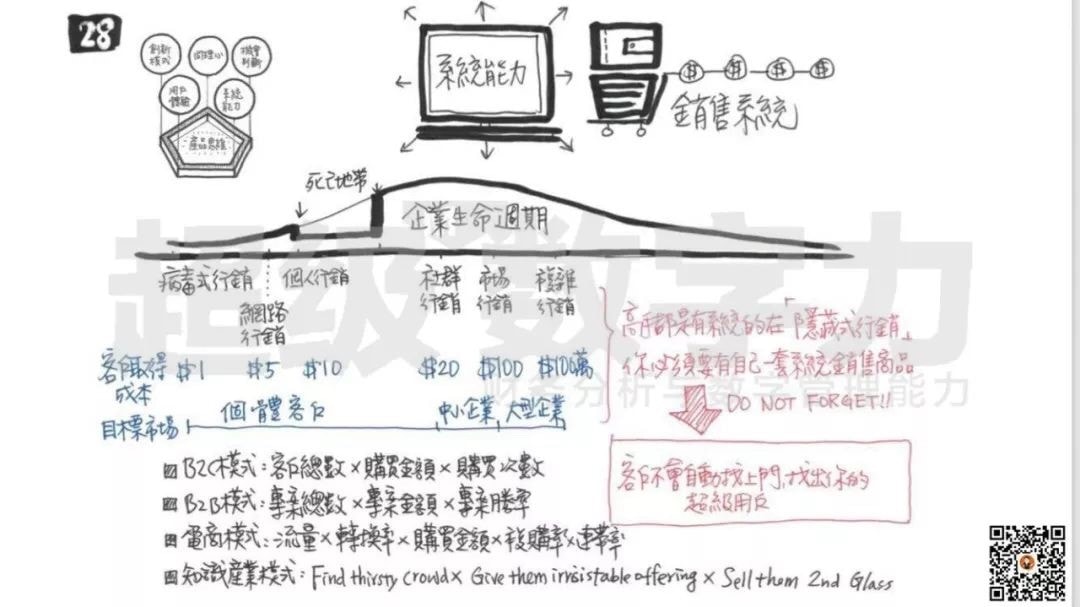 28
創新
模式
同理心
機會
判斷
用戶
體驗
系統
能力
產品思維
系統能力
$ $ $ $
銷售系統
死亡地帶
企業生命週期
病毒式行銷
網路
行銷
個人行銷
社群
行銷
市场
行銷
複雜
行銷
客戶取得
成本
$1 $5 $10 $20 $100 $100萬
目標市場
個體客戶 中小企業 大型企業
高手都是有系統的在「隱藏式行銷」
你必須要有自己一套系統銷售商品
DO NOT FORGET!!
客戶不會自動找上門,找出你的
超級用戶
B2C模式:客戶總數×購買金額×購買次數
B2B模式:專案總數×專案金額×專案勝率
電商模式:流量×轉換率×購買金額×複購率×連帶率
知識產業模式:Find thirsty crowd× Give them irrisistable offering × Sell them 2nd Glass
超级数字力
财务分析与数字管理能力